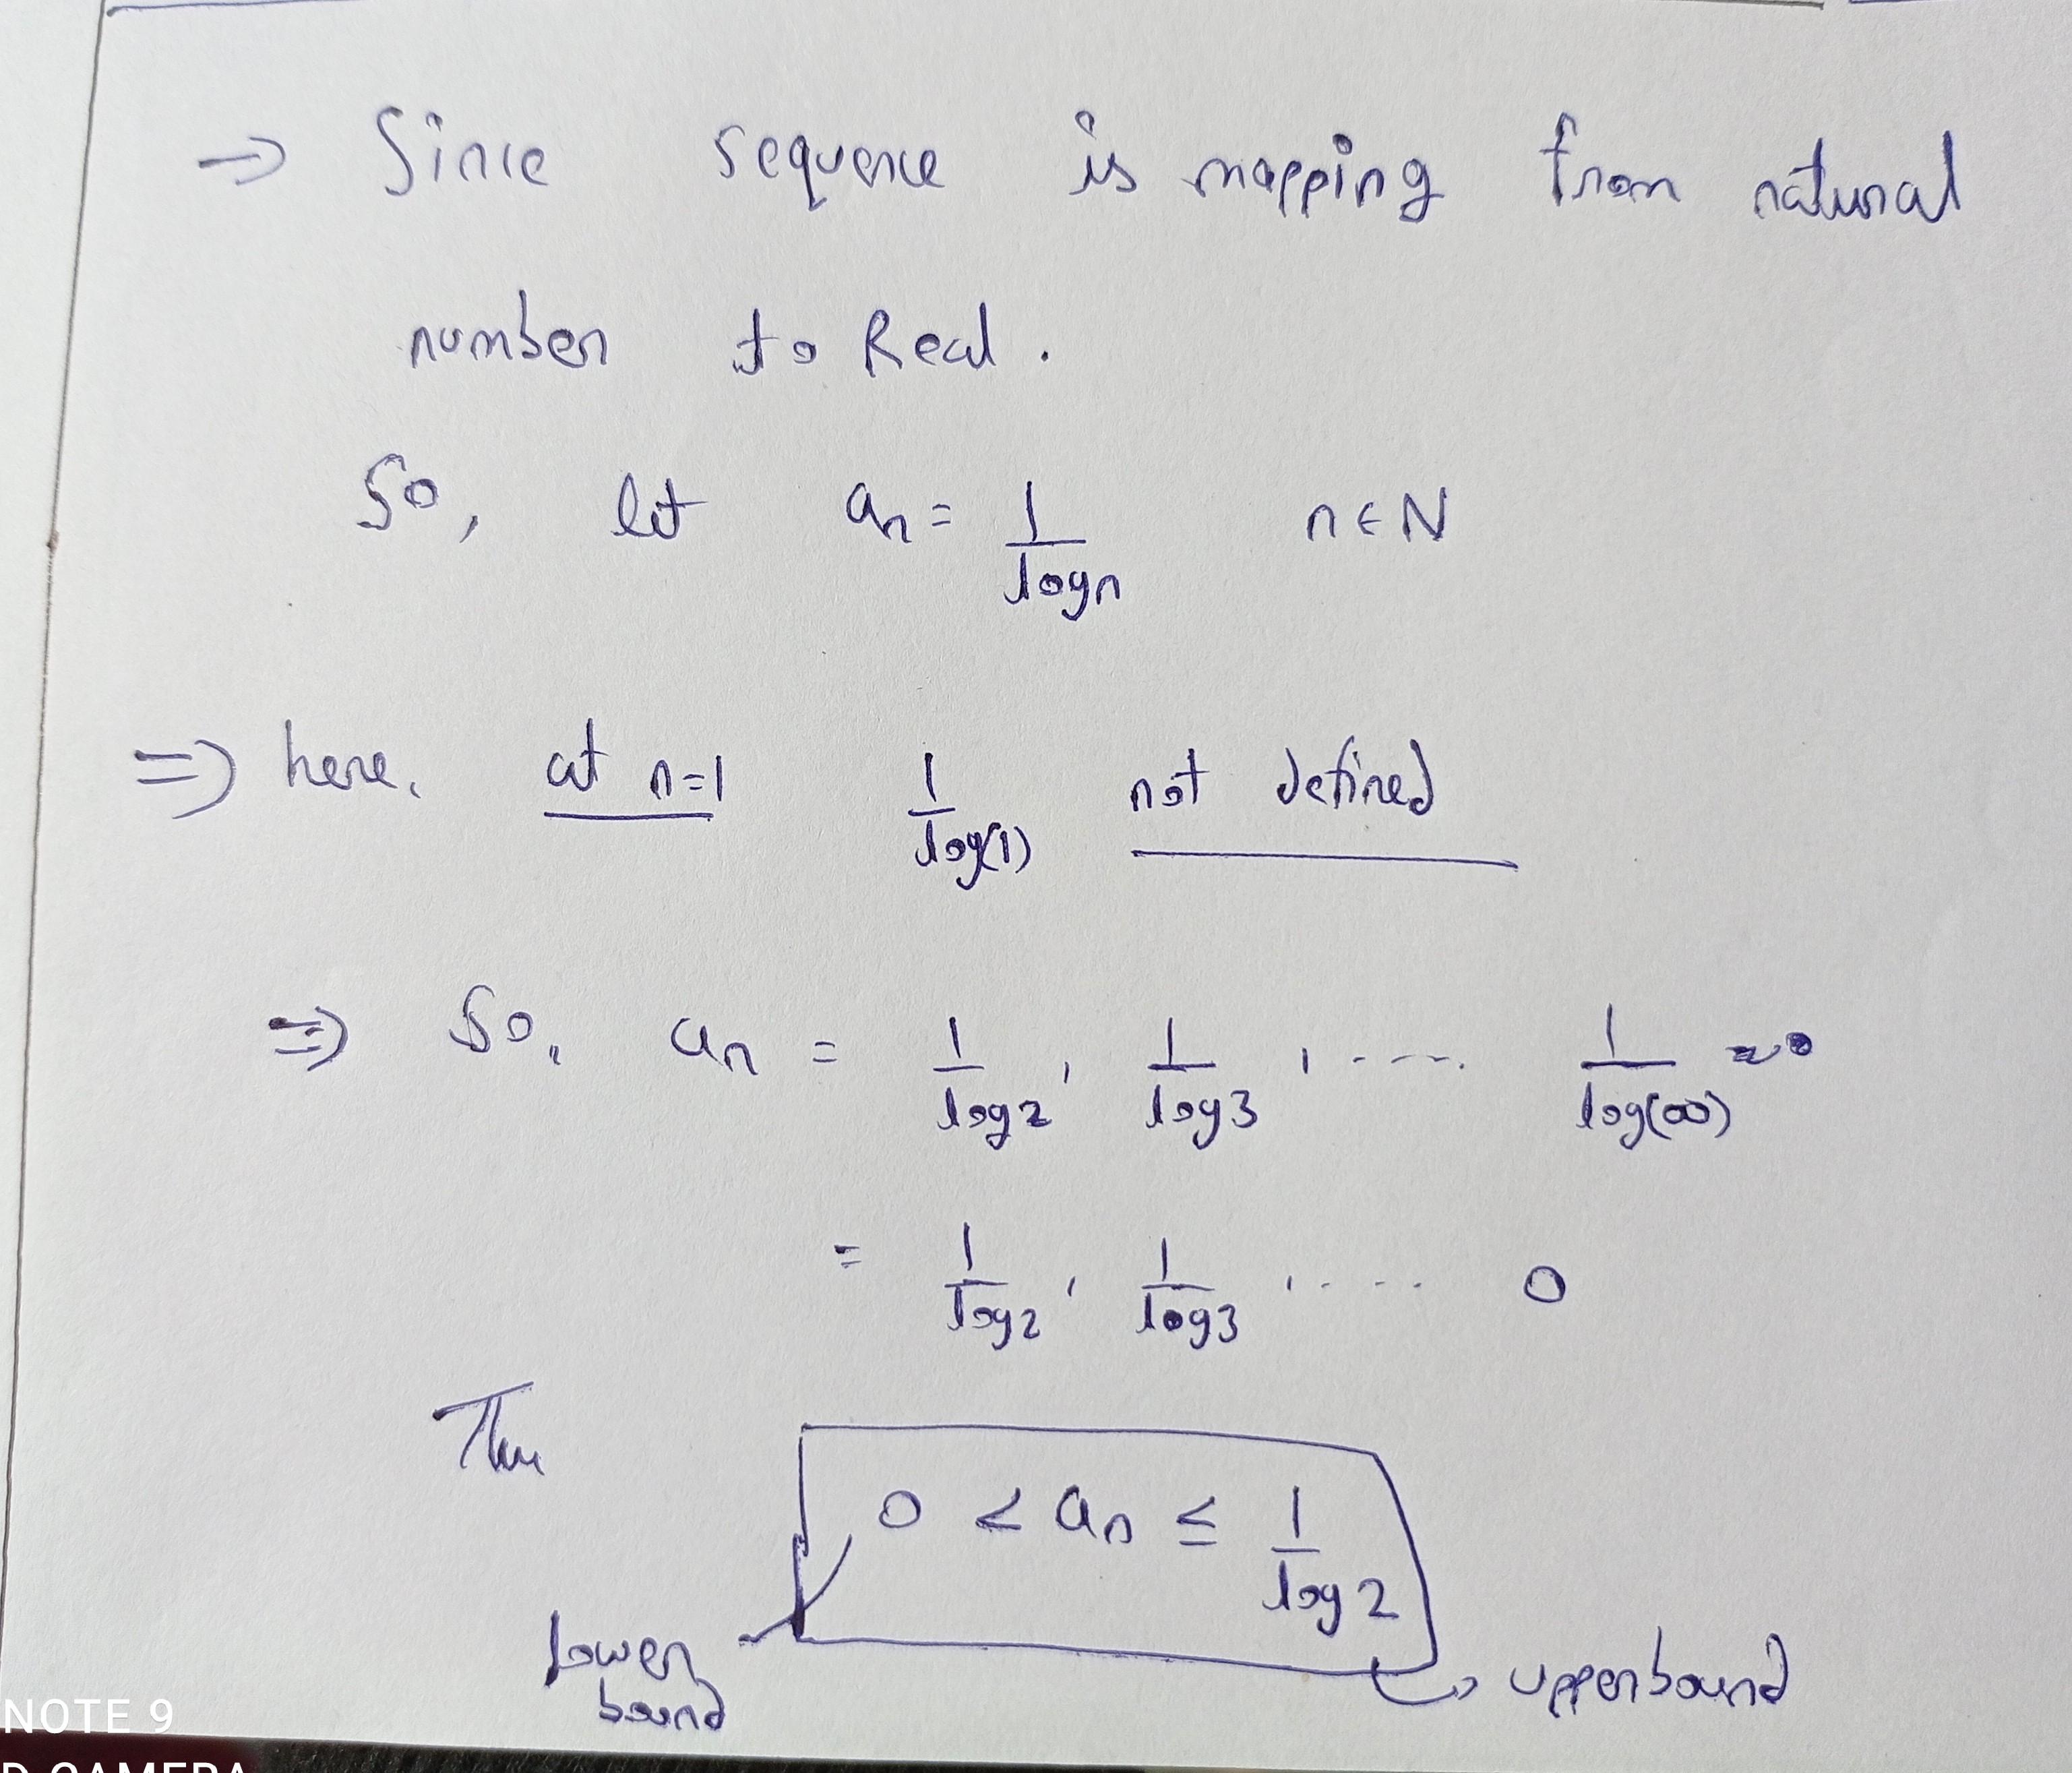 ⇒ Since sequence is mapping from natural
number to Real.
So, let an = 1/logn n ∈ N
⇒ here, at n=1 1/log(1) not defined
⇒ So, an = 1/log2, 1/log3, .... 1/log(∞) ≈0
= 1/log2, 1/log3, .... 0
Thu
0 < an ≤ 1/log 2
lower
bound
upperbound
NOTE 9
D CAMERA